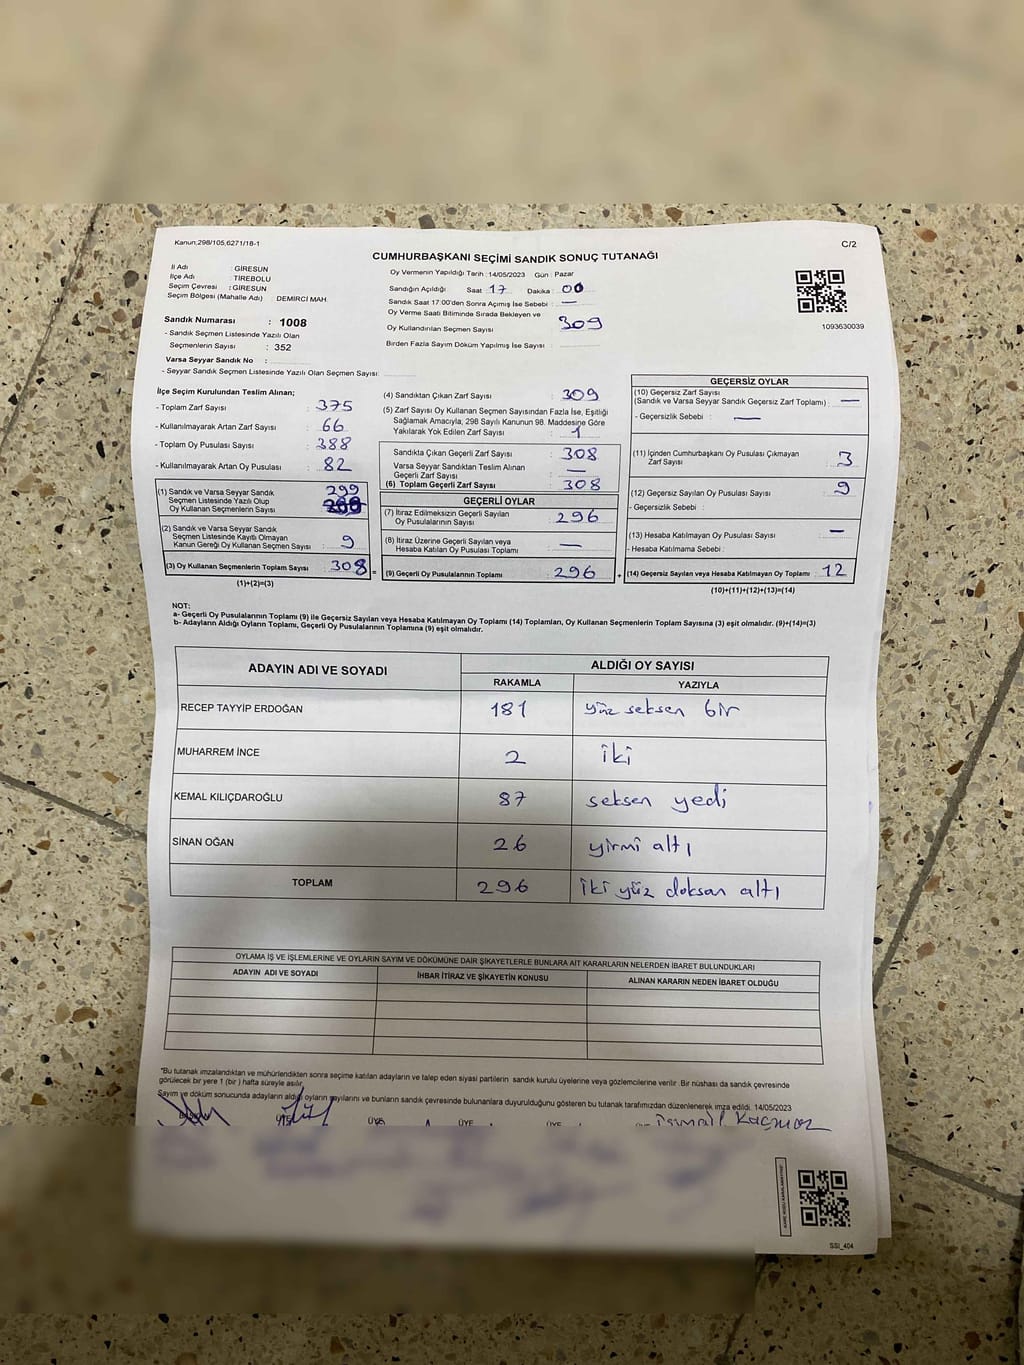 Kanun;298/105,6271/18-1
C/2
CUMHURBAŞKANI SEÇİMİ SANDIK SONUÇ TUTANAĞI
İl Adı : GİRESUN
İlçe Adı : TİREBOLU
Seçim Çevresi : GİRESUN
Seçim Bölgesi (Mahalle Adı) : DEMİRCİ MAH.
Sandık Numarası : 1008
- Sandık Seçmen Listesinde Yazılı Olan
Seçmenlerin Sayısı : 352
Varsa Seyyar Sandık No :
- Seyyar Sandık Seçmen Listesinde Yazılı Olan Seçmen Sayısı:
Oy Vermenin Yapıldığı Tarih :14/05/2023 Gün : Pazar
Sandığın Açıldığı Saat : 17 Dakika : 00
Sandık Saat 17:00'den Sonra Açımış İse Sebebi : —
Oy Verme Saati Bitiminde Sırada Bekleyen ve
Oy Kullandırılan Seçmen Sayısı 309
Birden Fazla Sayım Döküm Yapılmış İse Sayısı :
1093630039
İlçe Seçim Kurulundan Teslim Alınan;
- Toplam Zarf Sayısı : 375
- Kullanılmayarak Artan Zarf Sayısı : 66
- Toplam Oy Pusulası Sayısı : 388
- Kullanılmayarak Artan Oy Pusulası : 82
(1) Sandık ve Varsa Seyyar Sandık
Seçmen Listesinde Yazılı Olup
Oy Kullanan Seçmenlerin Sayısı : 299
(2) Sandık ve Varsa Seyyar Sandık
Seçmen Listesinde Kayıtlı Olmayan
Kanun Gereği Oy Kullanan Seçmen Sayısı : 9
(3) Oy Kullanan Seçmenlerin Toplam Sayısı : 308
(1)+(2)=(3)
(4) Sandıktan Çıkan Zarf Sayısı : 309
(5) Zarf Sayısı Oy Kullanan Seçmen Sayısından Fazla İse, Eşitliği
Sağlamak Amacıyla; 298 Sayılı Kanunun 98. Maddesine Göre
Yakılarak Yok Edilen Zarf Sayısı : 1
Sandıkta Çıkan Geçerli Zarf Sayısı : 308
Varsa Seyyar Sandıktan Teslim Alınan
Geçerli Zarf Sayısı : —
(6) Toplam Geçerli Zarf Sayısı : 308
GEÇERLİ OYLAR
(7) İtiraz Edilmeksizin Geçerli Sayılan
Oy Pusulalarının Sayısı : 296
(8) İtiraz Üzerine Geçerli Sayılan veya
Hesaba Katılan Oy Pusulası Toplamı : —
(9) Geçerli Oy Pusulalarının Toplamı : 296
GEÇERSİZ OYLAR
(10) Geçersiz Zarf Sayısı
(Sandık ve Varsa Seyyar Sandık Geçersiz Zarf Toplamı) : —
- Geçersizlik Sebebi : —
(11) İçinden Cumhurbaşkanı Oy Pusulası Çıkmayan
Zarf Sayısı : 3
(12) Geçersiz Sayılan Oy Pusulası Sayısı : 9
- Geçersizlik Sebebi :
(13) Hesaba Katılmayan Oy Pusulası Sayısı : —
- Hesaba Katılmama Sebebi :
(14) Geçersiz Sayılan veya Hesaba Katılmayan Oy Toplamı : 12
(10)+(11)+(12)+(13)=(14)
NOT:
a- Geçerli Oy Pusulalarının Toplamı (9) ile Geçersiz Sayılan veya Hesaba Katılmayan Oy Toplamı (14) Toplamları, Oy Kullanan Seçmenlerin Toplam Sayısına (3) eşit olmalıdır. (9)+(14)=(3)
b- Adayların Aldığı Oyların Toplamı, Geçerli Oy Pusulalarının Toplamına (9) eşit olmalıdır.
ADAYIN ADI VE SOYADI ALDIĞI OY SAYISI
RAKAMLA YAZIYLA
RECEP TAYYİP ERDOĞAN 181 yüz seksen bir
MUHARREM İNCE 2 iki
KEMAL KILIÇDAROĞLU 87 seksen yedi
SİNAN OĞAN 26 yirmi altı
TOPLAM 296 iki yüz doksan altı
OYLAMA İŞ VE İŞLEMLERİNE VE OYLARIN SAYIM VE DÖKÜMÜNE DAİR ŞİKAYETLERLE BUNLARA AİT KARARLARIN NELERDEN İBARET BULUNDUKLARI
ADAYIN ADI VE SOYADI İHBAR İTİRAZ VE ŞİKAYETİN KONUSU ALINAN KARARIN NEDEN İBARET OLDUĞU
*Bu tutanak imzalandıktan ve mühürlendikten sonra seçime katılan adayların ve talep eden siyasi partilerin sandık kurulu üyelerine veya gözlemcilerine verilir. Bir nüshası da sandık çevresinde
görülecek bir yere 1 (bir ) hafta süreyle asılır.
Sayım ve döküm sonucunda adayların aldığı oyların sayılarını ve bunların sandık çevresinde bulunanlara duyurulduğunu gösteren bu tutanak tarafımızdan düzenlenerek imza edildi. 14/05/2023
BAŞKAN ÜYE ÜYE ÜYE ÜYE
İsmail Kaçmaz
SSI_404